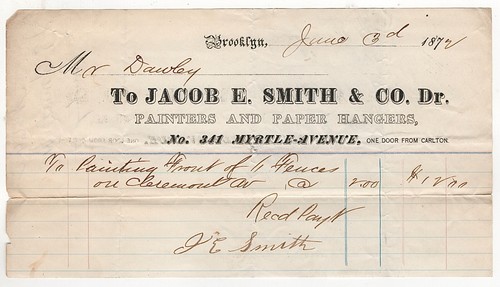 Brooklyn, June 3d 1872
Mr Dawley
To JACOB E. SMITH & CO. Dr.
PAINTERS AND PAPER HANGERS,
No. 341 MYRTLE-AVENUE, ONE DOOR FROM CARLTON.
To Painting Front of 6 Fences
on Claremont Av @ 2.00 $12.00
Recd Payt
J E Smith